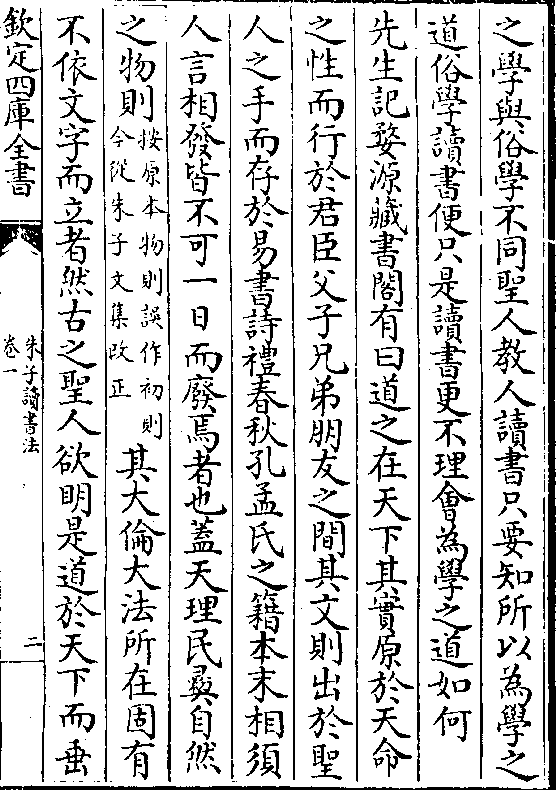 之學與俗學不同聖人教人讀書只要知所以為學之
道俗學讀書便只是讀書更不理會為學之道如何
先生記婺源藏書閣有曰道之在天下其實原於天命
之性而行於君臣父子兄弟朋友之間其文則出於聖
人之手而存於易書詩禮春秋孔孟氏之籍本末相須
人言相發皆不可一日而廢焉者也蓋天理民彛自然
之物則按原本物則誤作初則今從朱子文集改正其大倫大法所在固有
不依文字而立者然古之聖人欲明是道於天下而垂
欽定四庫全書
朱子讀書法
卷一
二